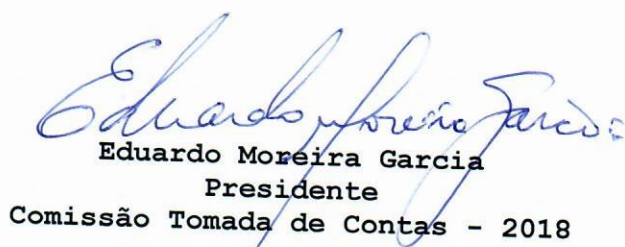 Eduardo Moreira Garcia
Eduardo Moreira Garcia
Presidente
Comissão Tomada de Contas - 2018